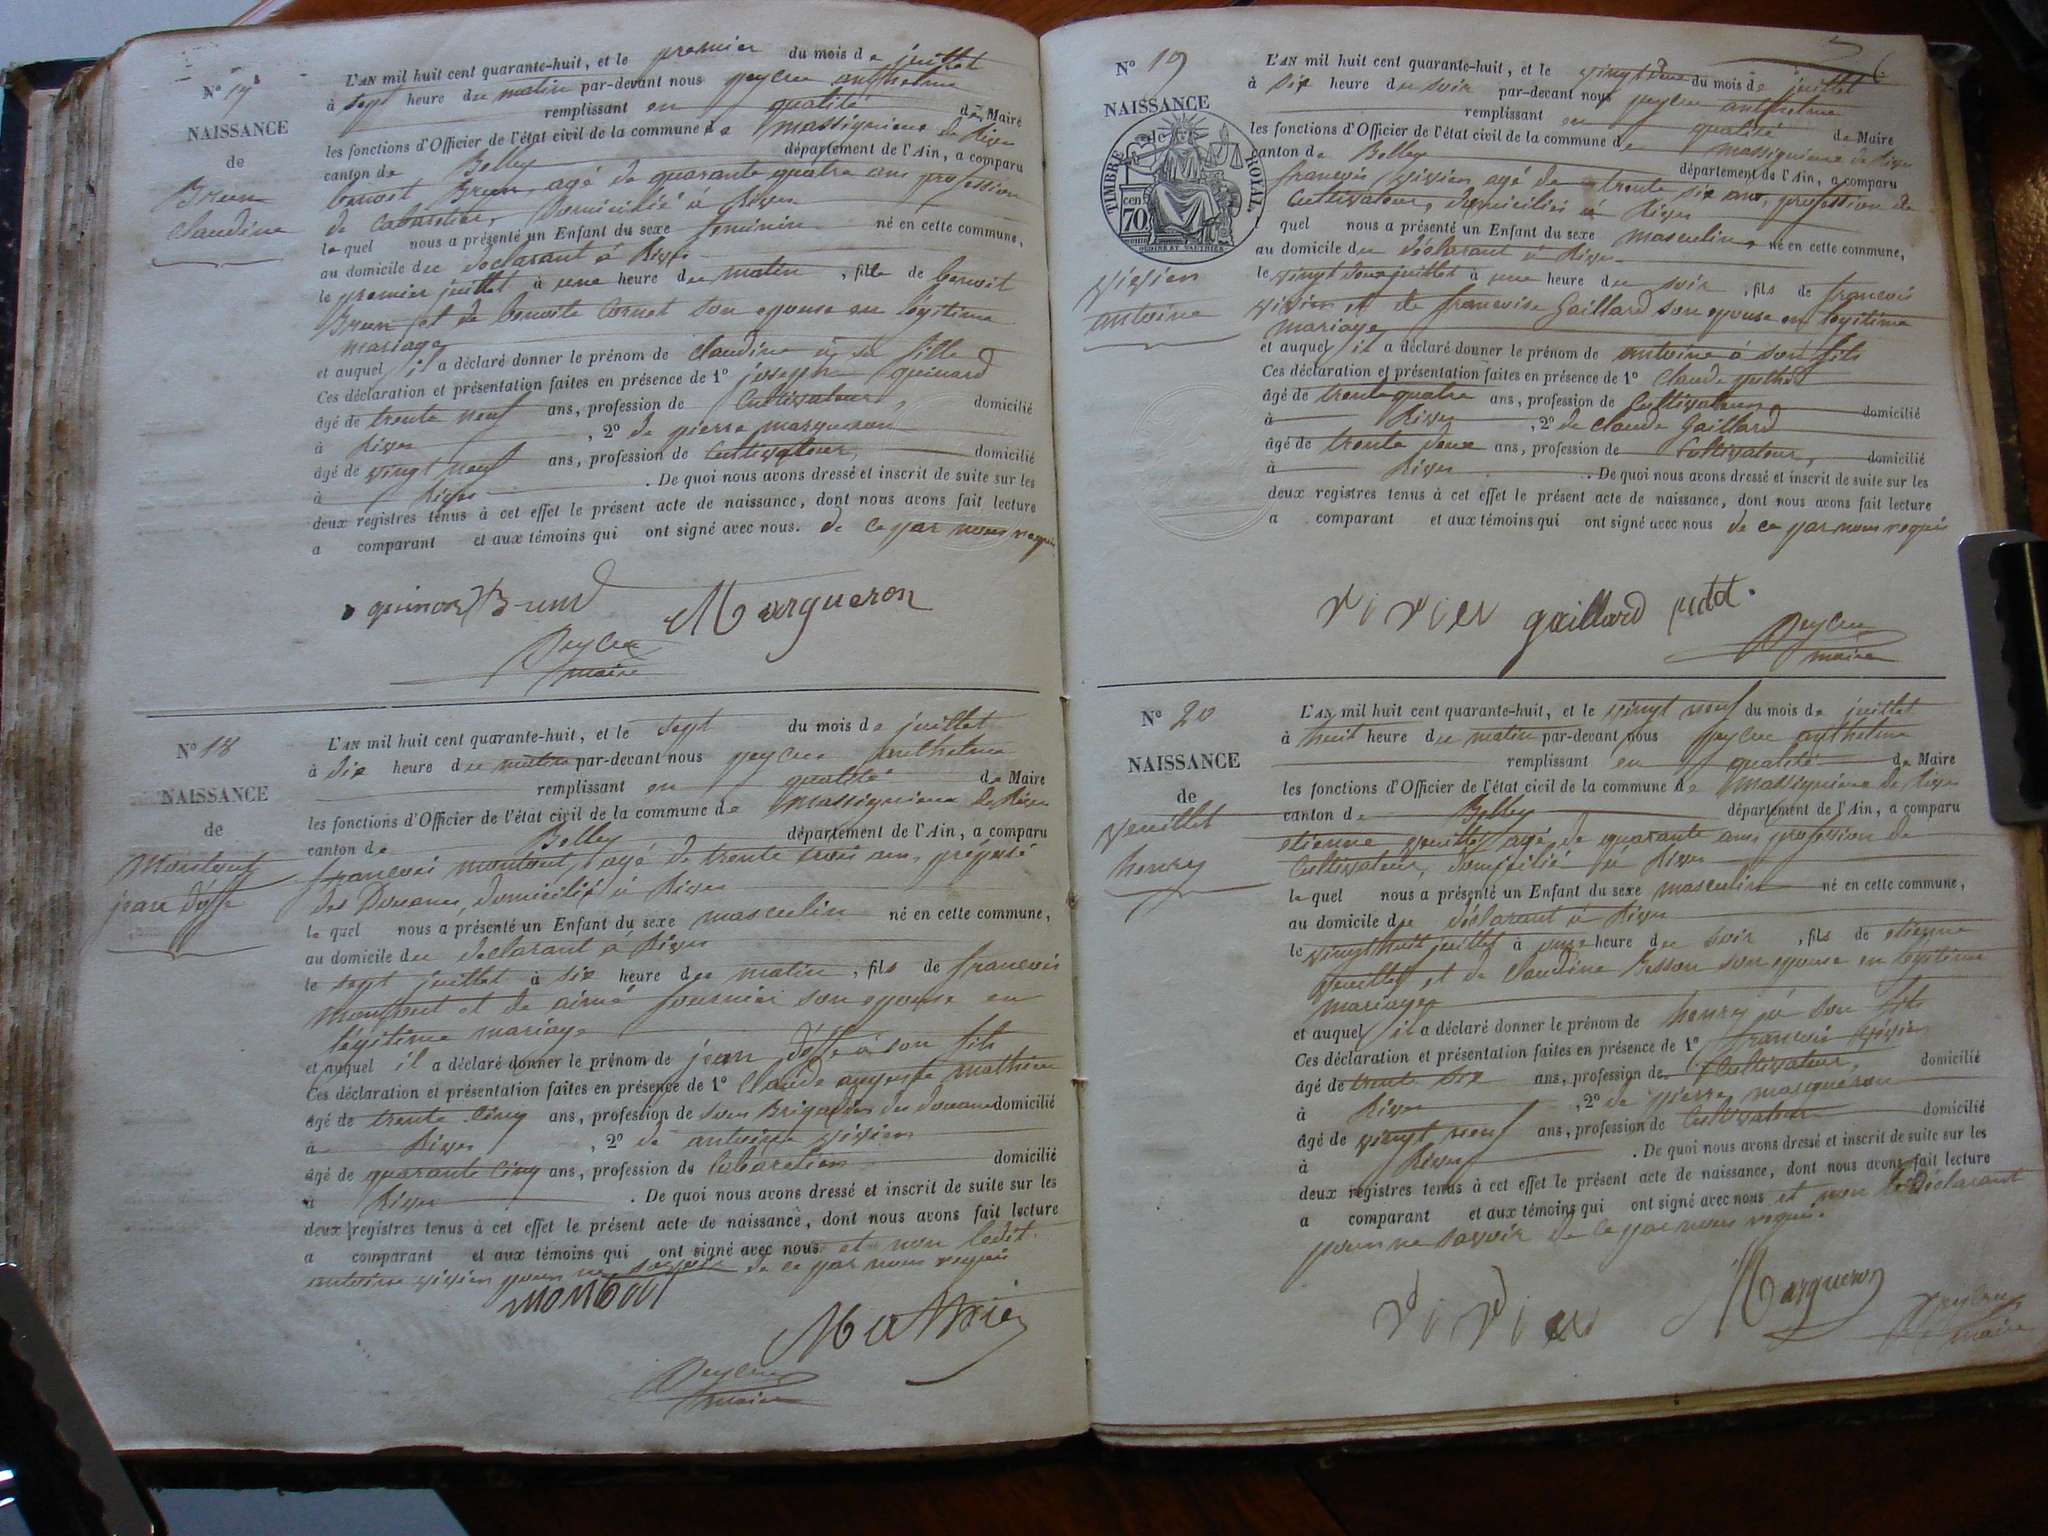 N° 17
NAISSANCE
de
Brun
Claudine
L'AN mil huit cent quarante-huit, et le premier du mois de juillet
à sept heure du matin par-devant nous peyleu anthelme
remplissant en qualité de Maire
les fonctions d'Officier de l'état civil de la commune de Massignieux de Rives
canton de Belley département de l'Ain, a comparu
benoit Brun, agé de quarante quatre ans profession
de Cabaretier, domicilié à Rives
lequel nous a présenté un Enfant du sexe feminin né en cette commune,
au domicile du déclarant à Rives
le premier juillet à une heure du matin, fille de benoit
Brun et de benoite Cornet son epouse en légitime
mariage
et auquel il a déclaré donner le prénom de claudine à sa fille
Ces déclaration et présentation faites en présence de 1° joseph quinard
âgé de trente neuf ans, profession de Cultivateur, domicilié
à Rives, 2° de pierre margueron
âgé de vingt neuf ans, profession de Cultivateur, domicilié
à Rives. De quoi nous avons dressé et inscrit de suite sur les
deux registres tenus à cet effet le présent acte de naissance, dont nous avons fait lecture
a comparant et aux témoins qui ont signé avec nous. de ce par nous requis
Brun Margueron
Peyleu
maire
N° 18
NAISSANCE
de
Montout
jean
L'AN mil huit cent quarante-huit, et le sept du mois de juillet
à dix heure du matin par-devant nous peyleu anthelme
remplissant en qualité de Maire
les fonctions d'Officier de l'état civil de la commune de Massignieux de Rives
canton de Belley département de l'Ain, a comparu
françois montout, agé de trente trois ans, préposé
des Douanes, domicilié à Rives
lequel nous a présenté un Enfant du sexe masculin né en cette commune,
au domicile du declarant a Rives
le sept juillet à six heure du matin, fils de francois
montout et de aimé fournier son epouse en
légitime mariage
et auquel il a déclaré donner le prénom de jean à son fils
Ces déclaration et présentation faites en présence de 1° Claude auguste mathieu
âgé de trente cinq ans, profession de sous Brigadier des douane domicilié
à Rives, 2° de antoine vivien
âgé de quarante cinq ans, profession de Cabaretier domicilié
à Rives. De quoi nous avons dressé et inscrit de suite sur les
deux registres tenus à cet effet le présent acte de naissance, dont nous avons fait lecture
a comparant et aux témoins qui ont signé avec nous et non ledit
antoine vivien pour ne savoir de ce par nous requis
montout
Mathieu
Peyleu
maire
N° 19
NAISSANCE
TIMBRE ROYAL
cen. 70
vivien
antoine
L'AN mil huit cent quarante-huit, et le vingt deux du mois de juillet
à six heure du soir par-devant nous peyleu anthelme
remplissant en qualité de Maire
les fonctions d'Officier de l'état civil de la commune de massignieux de Rives
canton de Belley département de l'Ain, a comparu
françois vivien agé de trente six ans, profession de
Cultivateur, domicilié à Rives
quel nous a présenté un Enfant du sexe masculin, né en cette commune,
au domicile du déclarant à Rives
le vingt deux juillet à une heure du soir, fils de françois
vivien et de francoise Gaillard son epouse en legitime
mariage
et auquel il a déclaré donner le prénom de antoine à son fils
Ces déclaration et présentation faites en présence de 1° Claude
âgé de trente quatre ans, profession de Cultivateur domicilié
à Rives, 2° de claude Gaillard
âgé de trente deux ans, profession de Cultivateur, domicilié
à Rives. De quoi nous avons dressé et inscrit de suite sur les
deux registres tenus à cet effet le présent acte de naissance, dont nous avons fait lecture
a comparant et aux témoins qui ont signé avec nous de ce par nous requis
vivien gaillard
Peyleu
maire
N° 20
NAISSANCE
de
veuillet
henry
L'AN mil huit cent quarante-huit, et le vingt neuf du mois de juillet
à huit heure du matin par-devant nous peyleu anthelme
remplissant en qualité de Maire
les fonctions d'Officier de l'état civil de la commune de Massignieux de Rives
canton de Belley département de l'Ain, a comparu
etienne veuillet, agé de quarante ans, profession de
Cultivateur, domicilié a Rives
lequel nous a présenté un Enfant du sexe masculin né en cette commune,
au domicile du déclarant à Rives
le vingt huit juillet à onze heure du soir, fils de etienne
veuillet et de claudine Besson son epouse en légitime
mariage
et auquel il a déclaré donner le prénom de henry à son fils
Ces déclaration et présentation faites en présence de 1° francois vivien
âgé de trente six ans, profession de Cultivateur, domicilié
à Rives, 2° de pierre margueron
âgé de vingt neuf ans, profession de Cultivateur domicilié
à Rives. De quoi nous avons dressé et inscrit de suite sur les
deux registres tenus à cet effet le présent acte de naissance, dont nous avons fait lecture
a comparant et aux témoins qui ont signé avec nous et non le Déclarant
pour ne savoir de ce par nous requis.
vivien Margueron
Peyleu
maire